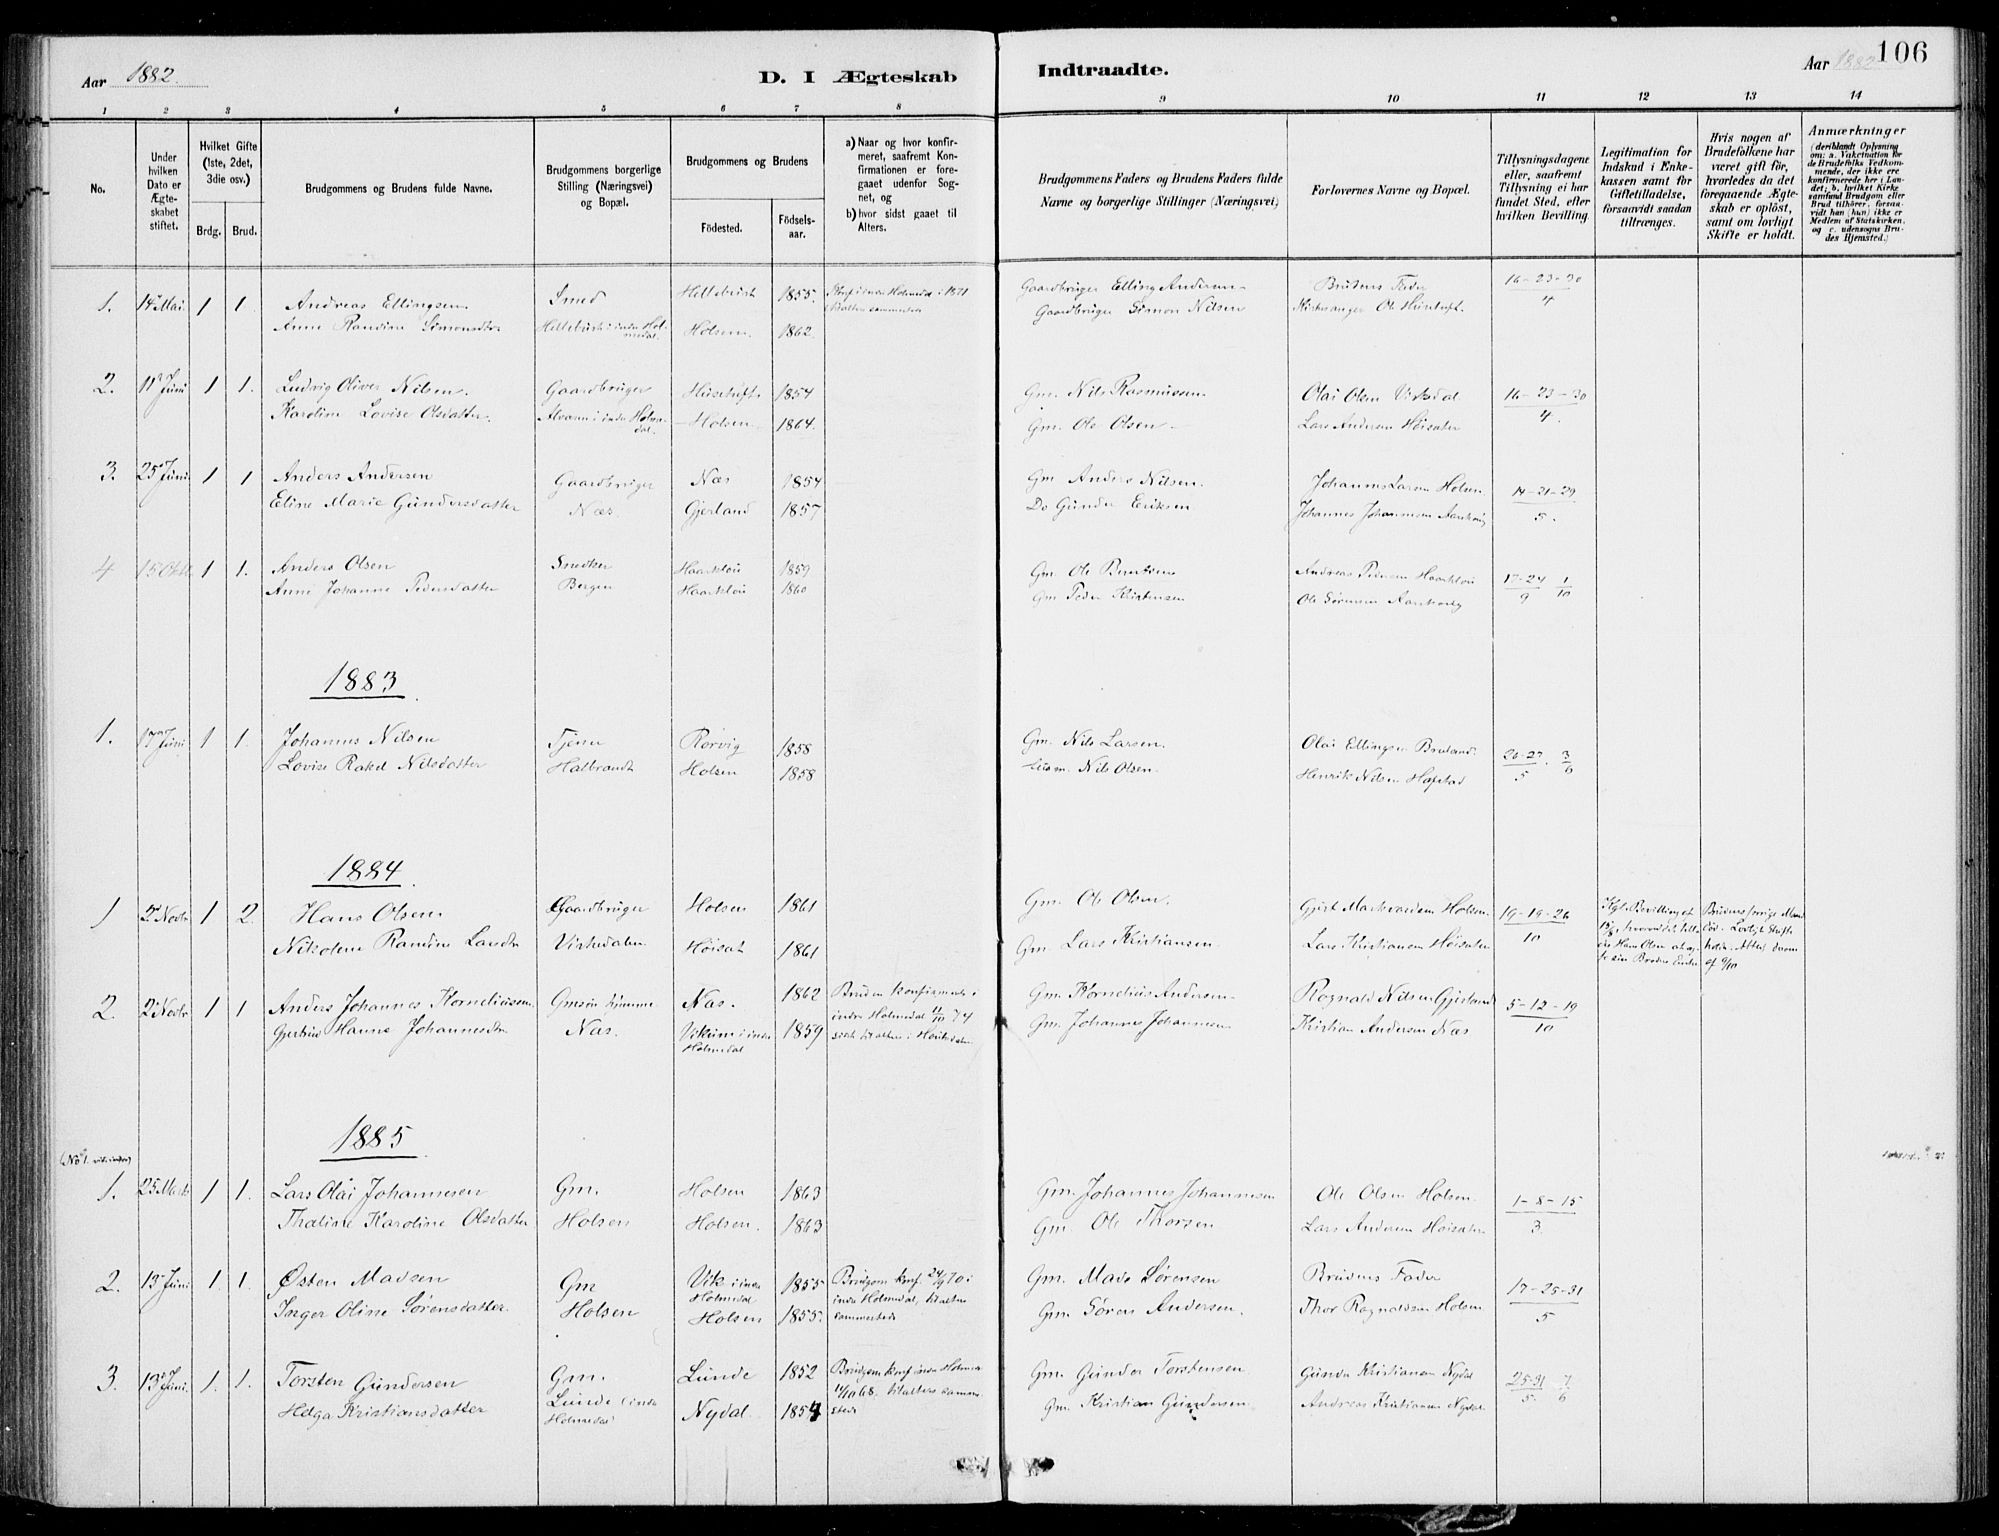 Aar 1882.
D. I Ægteskab
Indtraadte.
Aar 1882
106
1 2 3 4 5 6 7 8 9 10 11 12 13 14
No.
Under hvilken Dato er Ægteskabet stiftet.
Hvilket Gifte (1ste, 2det, 3die osv.)
Brdg. Brud.
Brudgommens og Brudens fulde Navne.
Brudgommens borgerlige Stilling (Næringsvei) og Bopæl.
Brudgommens og Brudens
Fødested.
Fødselsaar.
a) Naar og hvor konfirmeret, saafremt Konfirmationen er foregaaet udenfor Sognet, og
b) hvor sidst gaaet til Alters.
Brudgommens Faders og Brudens Faders fulde Navne og borgerlige Stillinger (Næringsvei)
Forlovernes Navne og Bopæl.
Tillysningsdagene eller, saafremt Tillysning ei har fundet Sted, efter hvilken Bevilling.
Legitimation for Indskud i Enkekassen samt for Giftetilladelse, forsaavidt saadan tiltrænges.
Hvis nogen af Brudefolkene har været gift før, hvorledes da det foregaaende Ægteskab er opløst, samt om lovligt Skifte er holdt.
Anmærkninger (deriblandt Oplysning om: a. Vakcination for de Brudefolks Vedkommende, der ikke ere konfirmerede her i Landet; b. hvilket Kirkesamfund Brudgom eller Brud tilhører, forsaavidt han (hun) ikke er Medlem af Statskirken, og c. udensogns Brudes Hjemsted.)
1. 14de Mai 1 1. Andreas Ellingsen Smed 1855. Gaardbruger Elling Andersen Brudens Fader 16-23-30
Anne Randine Simonsdtr Holsen. 1862. Gaardbruger Simon Nilsen Kirkesanger Ole 4
2. 11te Juni 1 1. Ludvig Oliver Nilsen. Gaardbruger 1854 Gm. Nils Rasmussen Olai Olsen Virkedal 16-23-30
Karoline Lovise Olsdatter. Holsen 1864. Gm. Ole Olsen Lars Andersen Høisæter 4.
3. 25de Juni 1 1 Anders Andersen Gaardbruger Næs 1854 Gm Anders Nilsen. Johannes Larsen Holsen 14-21-29
Eline Marie Gundersdatter Næs. Gjerland 1857 Do Gunder Eriksen Johannes Johannesen 5.
4 15 Oktb 1 1. Anders Olsen Snedker 1859 Gm. Ole Andreas Pedersen 17-24 1
Anne Johanne Pedersdatter Bergen 1860 Gm Peder Kristensen Ole Sørensen 9 10
1883
1. 17de Juni 1 1. Johannes Nilsen Tjener Rørvig 1858 Gm. Nils Larsen. Olai Ellingsen Bruland 20-27. 3
Lovise Rakel Nilsdatter Halbrendt Holsen 1858 Nils Olsen. Henrik Nilsen Hafstad 5 6
1884
1 2. Novbr 1 2. Hans Olsen Gaardbruger Holsen 1861 Gm. Ole Olsen. Gjert Markvardsen Holsen 19-19-26 Kgl. Bevilling af Brudens forrige Mand
Nikoline Randine Larsdtr Virkedalen Høisæt 1861 Gm. Lars Kristiansen Lars Kristiansen Høisæter 10
2. 2 Novbr 1 1 Anders Johannes Korneliussen Gmsøn hjemme Næs. 1862 Bruden konfirmeret i Gm. Kornelius Andersen Rognald Nilsen Gjerland 5-12-19
Gjertine Hanne Johannesdtr Næs. Holmedal 1859 indre Holmedal Gm. Johannes Johannesen Kristian Andersen Næs 10
1885
1. 25 Marts 1 1. Lars Olai Johannesen Gm. Holsen 1863 Gm. Johannes Johannesen Ole Olsen Holsen 1-8-15
Thaline Karoline Olsdatter Holsen Holsen. 1863 Gm. Ole Thorsen Lars Andersen Høisæter 3.
2. 13de Juni 1. 1. Østen Madsen Gm Vik i indre Holmedal 1855 Brudgom konf. 24/9 70 i indre Holmedal, Gm. Mads Sørensen Brudens Fader 17-25-31
Inger Oline Sørensdatter. Holsen Holsen 1855. Gm. Søren Andersen. Thor Rognaldsen Holsen 5
3. 13de Juni. 1. 1. Torsten Gundersen Gm. Lunde 1852 Brudgom konf indre Holmedal Gm. Gunder Torstensen Gunder Kristiansen Nydal 25-31 7
Helga Kristiansdatter Lunde i indre Holmedal Nydal. 1854 Gm. Kristian Gundersen Andreas Kristiansen Nydal 5. 6